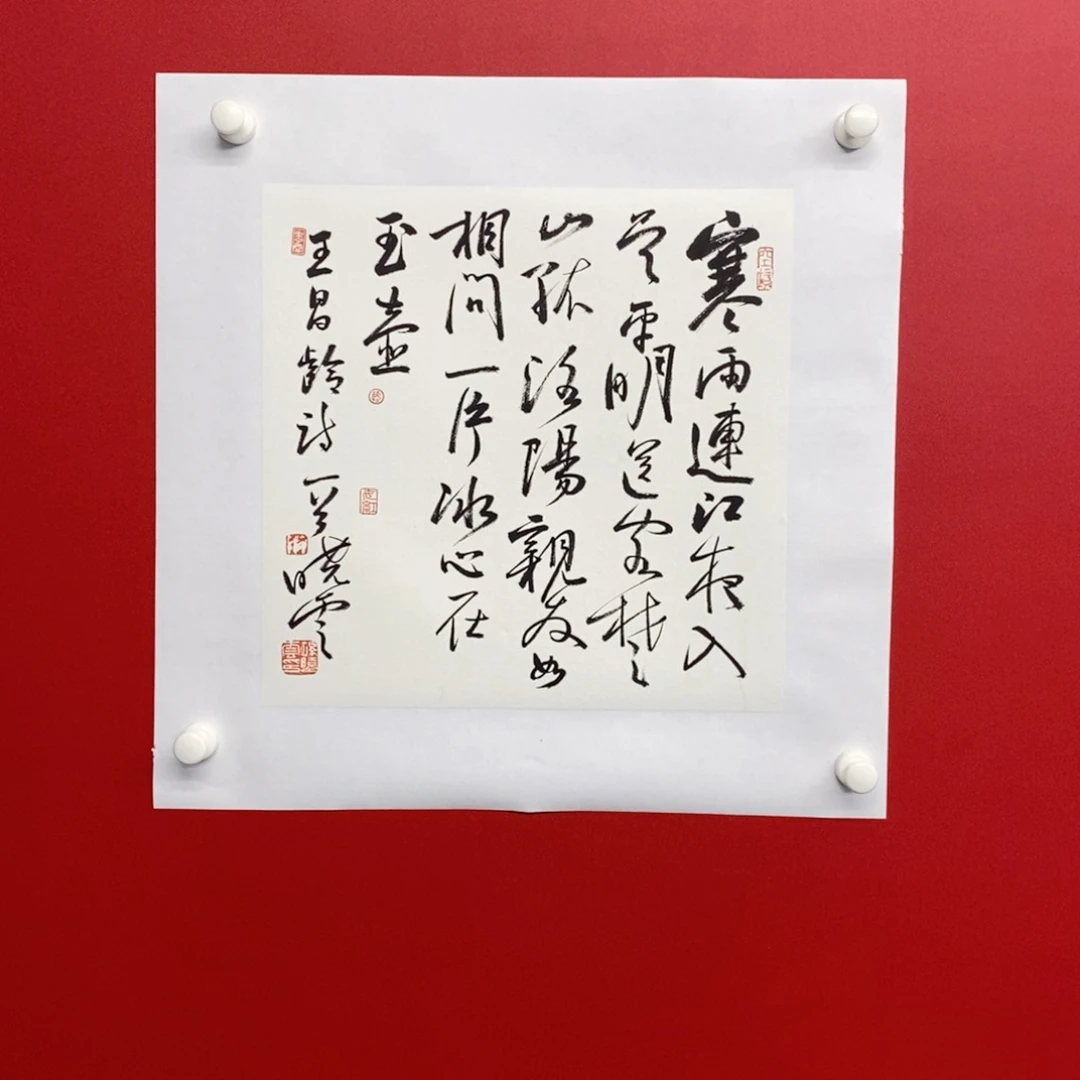 寒雨連江夜入
吴平明送客楚
山孤洛陽親友如
相問一片冰心在
玉壺
王昌齡诗 曉雲